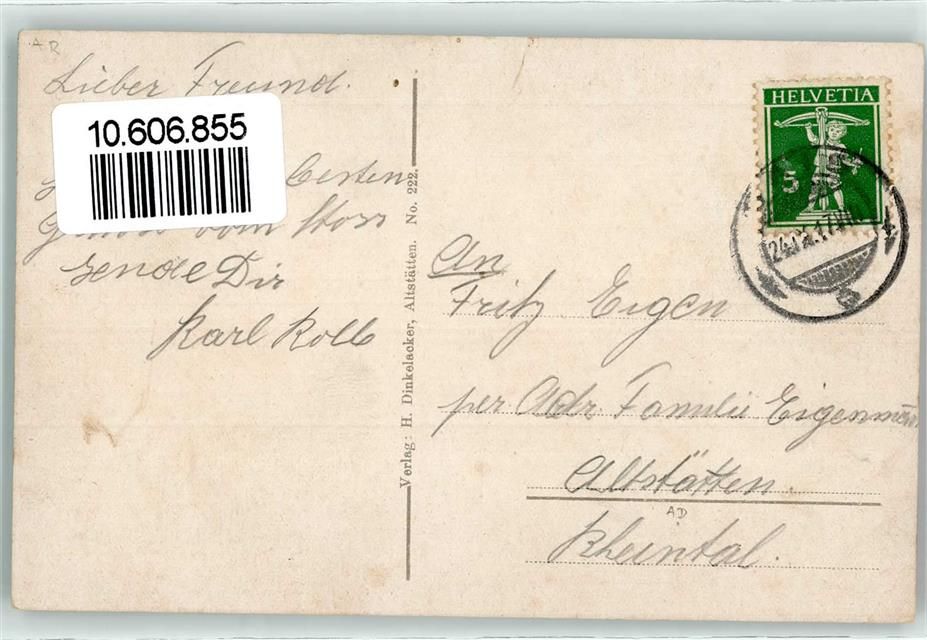 AR
Lieber Freund.
10.606.855
besten
vom Stoss
sende Dir
Karl Kolb
Verlag: H. Dinkelacker, Altstätten. No. 222.
HELVETIA
5
24.IX.17
An
Fritz Eigen
per Adr. Familie Eigenmann
Altstätten.
AD
Rheintal.